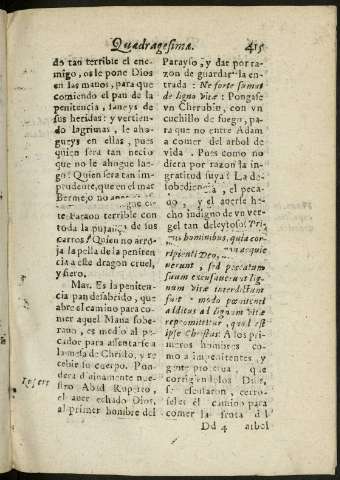 Quadragesima. 415
do tan terrible el ene-
migo, os le pone Dios
en las manos, para que
comiendo el pan de la
penitencia, saneys de
sus heridas: y vertien-
do lagrimas, le aho-
gueys en ellas, pues
quien sera tan necio
que no le ahogue lue-
go? Quien sera tan im-
prudente, que en el mar
Bermejo no
te Faraon terrible con
toda la de sus
carros? Quien no arro-
ja la pella de la peniten
cia a este dragon cruel,
y fiero.
Mas. Es la peniten-
cia pan desabrido, que
abre el camino para co-
mer aquel Mana sobe-
rano, es medio al pe-
cador para assentarse a
la mesa de Christo, y re
cebir su cuerpo. Pon-
dera diuinamente nue-
stro Abad Ruperto,
el auer echado Dios,
al primer hombre del
Parayso, y dar por ra-
zon de guardar la en-
trada: Ne forte sumat
de ligno vitæ: Pongase
vn Cherubin, con vn
cuchillo de fuego, pa-
ra que no entre Adam
a comer del arbol de
vida. Pues como no
diera por razon la in-
gratitud suya? La de-
sobediencia, el peca-
do, y el auerse he-
cho indigno de vn ver-
gel tan deleytoso?
hominibus, quia cor-
ripienti Deo,
uerunt, sed peccatum
suum excusauerunt lignum
vitæ interdictum
fuit modo pœnitenti
additus ad lignum vitæ
repromittitur, quod est
ipse Christus. A los pri-
meros hombres co-
mo a impenitentes, y
gente proterua, que
corrigiendolos Dios,
se escusaron, cerro-
seles el camino para
comer la fruta del
Dd 4 arbol